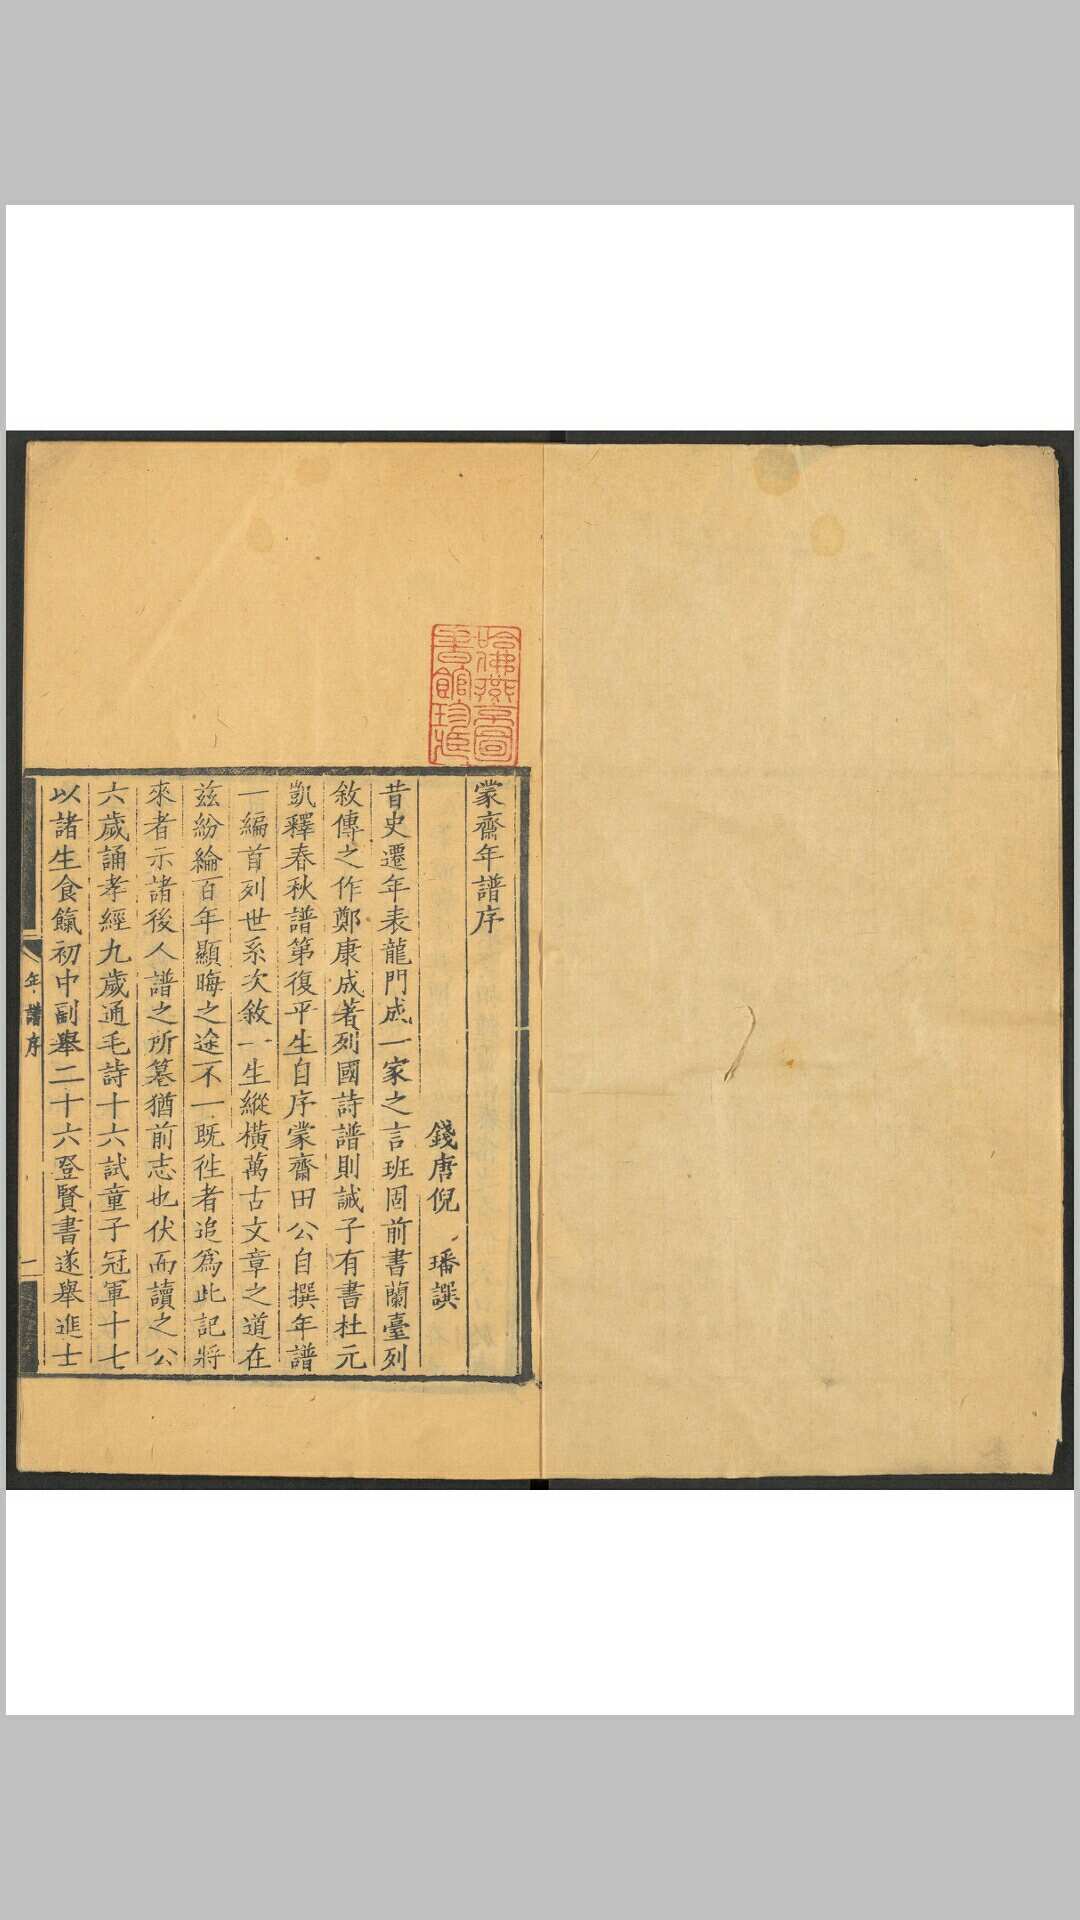 哈佛燕京圖
書館珍藏
蒙齋年譜序
錢唐倪 璠譔
昔史遷年表龍門成一家之言班固前書蘭臺列
敘傳之作鄭康成著列國詩譜則誡子有書杜元
凱釋春秋譜第復平生自序蒙齋田公自撰年譜
一編首列世系次敘一生縱橫萬古文章之道在
茲紛綸百年顯晦之途不一既徃者追爲此記將
來者示諸後人譜之所篹猶前志也伏而讀之公
六歲誦孝經九歲通毛詩十六試童子冠軍十七
以諸生食餼初中副舉二十六登賢書遂舉進士
年譜序
一